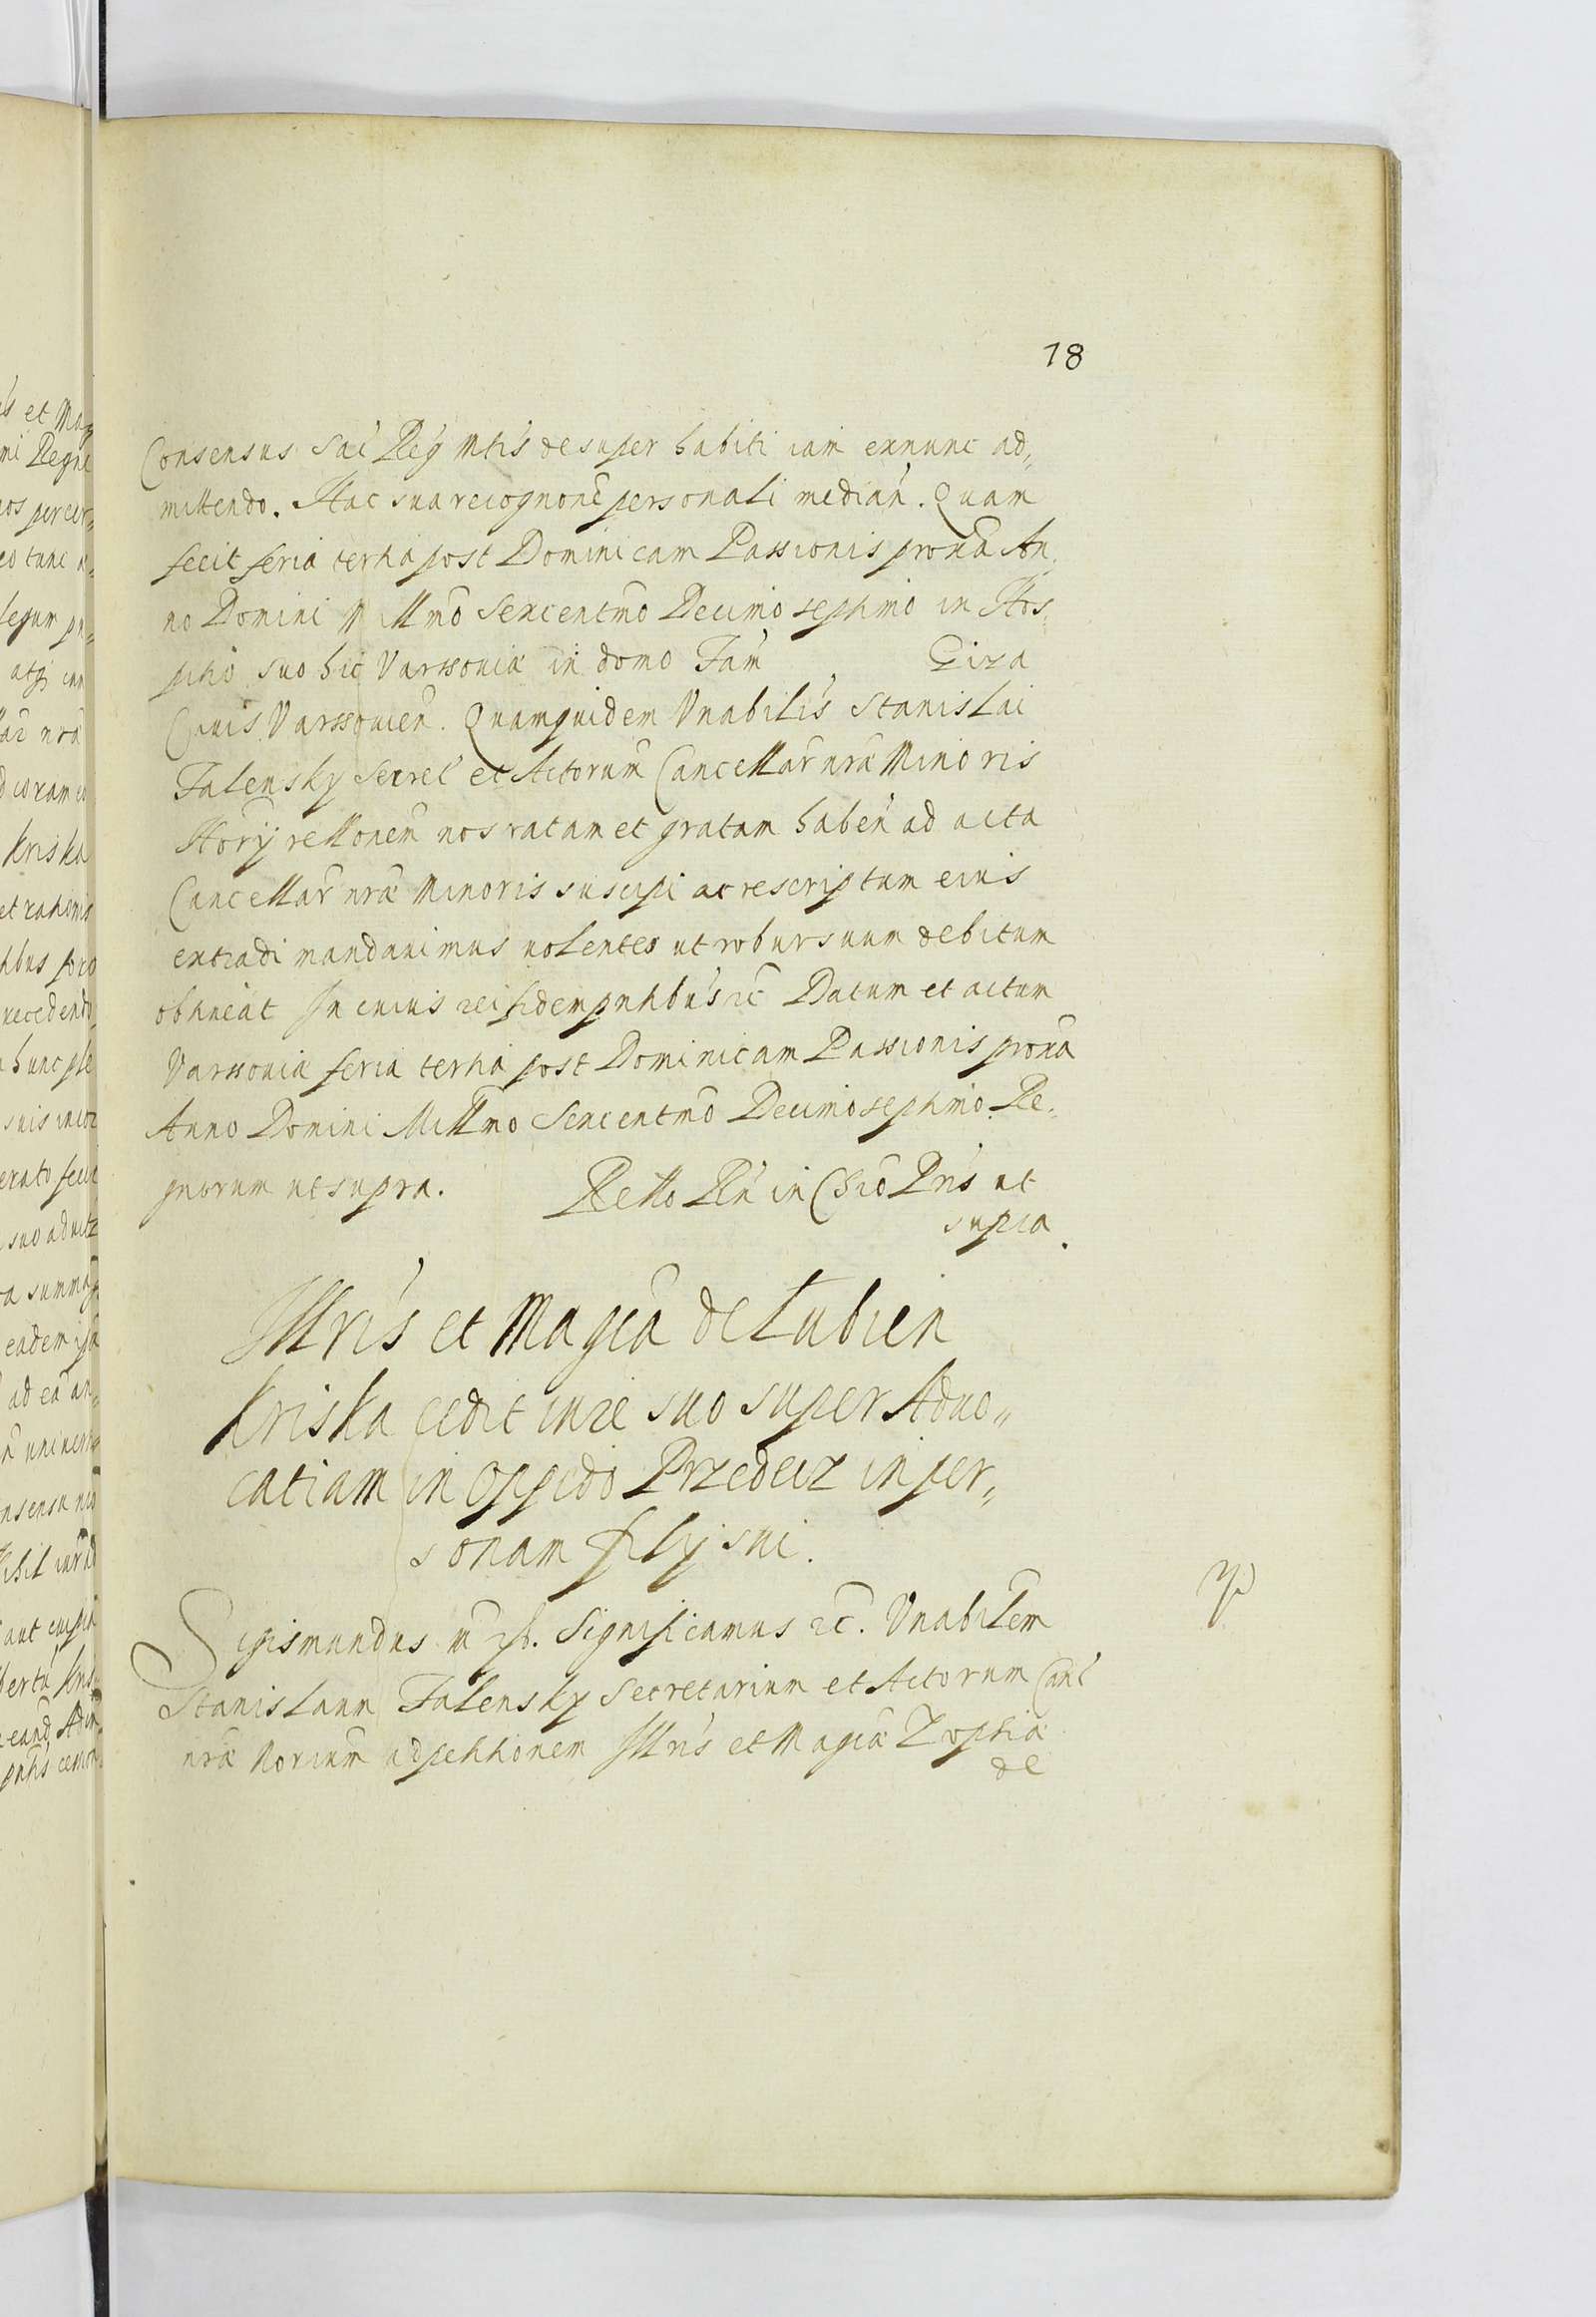 18
Consensus Sac Reg Mtis desuper habiti iam exnunc ad„
mittendo. Hac sua recognone personali median. Quam
fecit feria tertia post Dominicam Passionis proxa An„
no Domini Millmo Sexcentmo Decimo septimo in Hos„
pitio suo hic Varssouiæ in domo Fam Giza
Ciuis Varssouien. Quamquidem Vnabilis Stanislai
Falensky Secret et Actorum Cancellar nræ Minoris
Norij rellonem nos ratam et gratam haben ad acta
Cancellar nræ Minoris suscipi ac rescriptum eius
extradi mandauimus volentes ut robur suum debitum
obtineat In cuius rei fidem pntibus &c Datum et actum
Varssouiæ feria tertia post Dominicam Passionis proxa
Anno Domini Millmo Sexcentmo Decimo septimo. Re„
gnorum ut supra. Rello Rn in Chro Pris ut
supra.
Illris et Magca de Lubien
Kriska cedit iure suo super Aduo„
catiam in oppido Przedecz in per„
sonam filij sui.
Sigismundus III &c. Significamus &c. Vnabilem
Stanislaum Falensky Secretarium et Actorum Canc
nræ Norium ad petitionem Illris et Magcæ Zophiæ
de